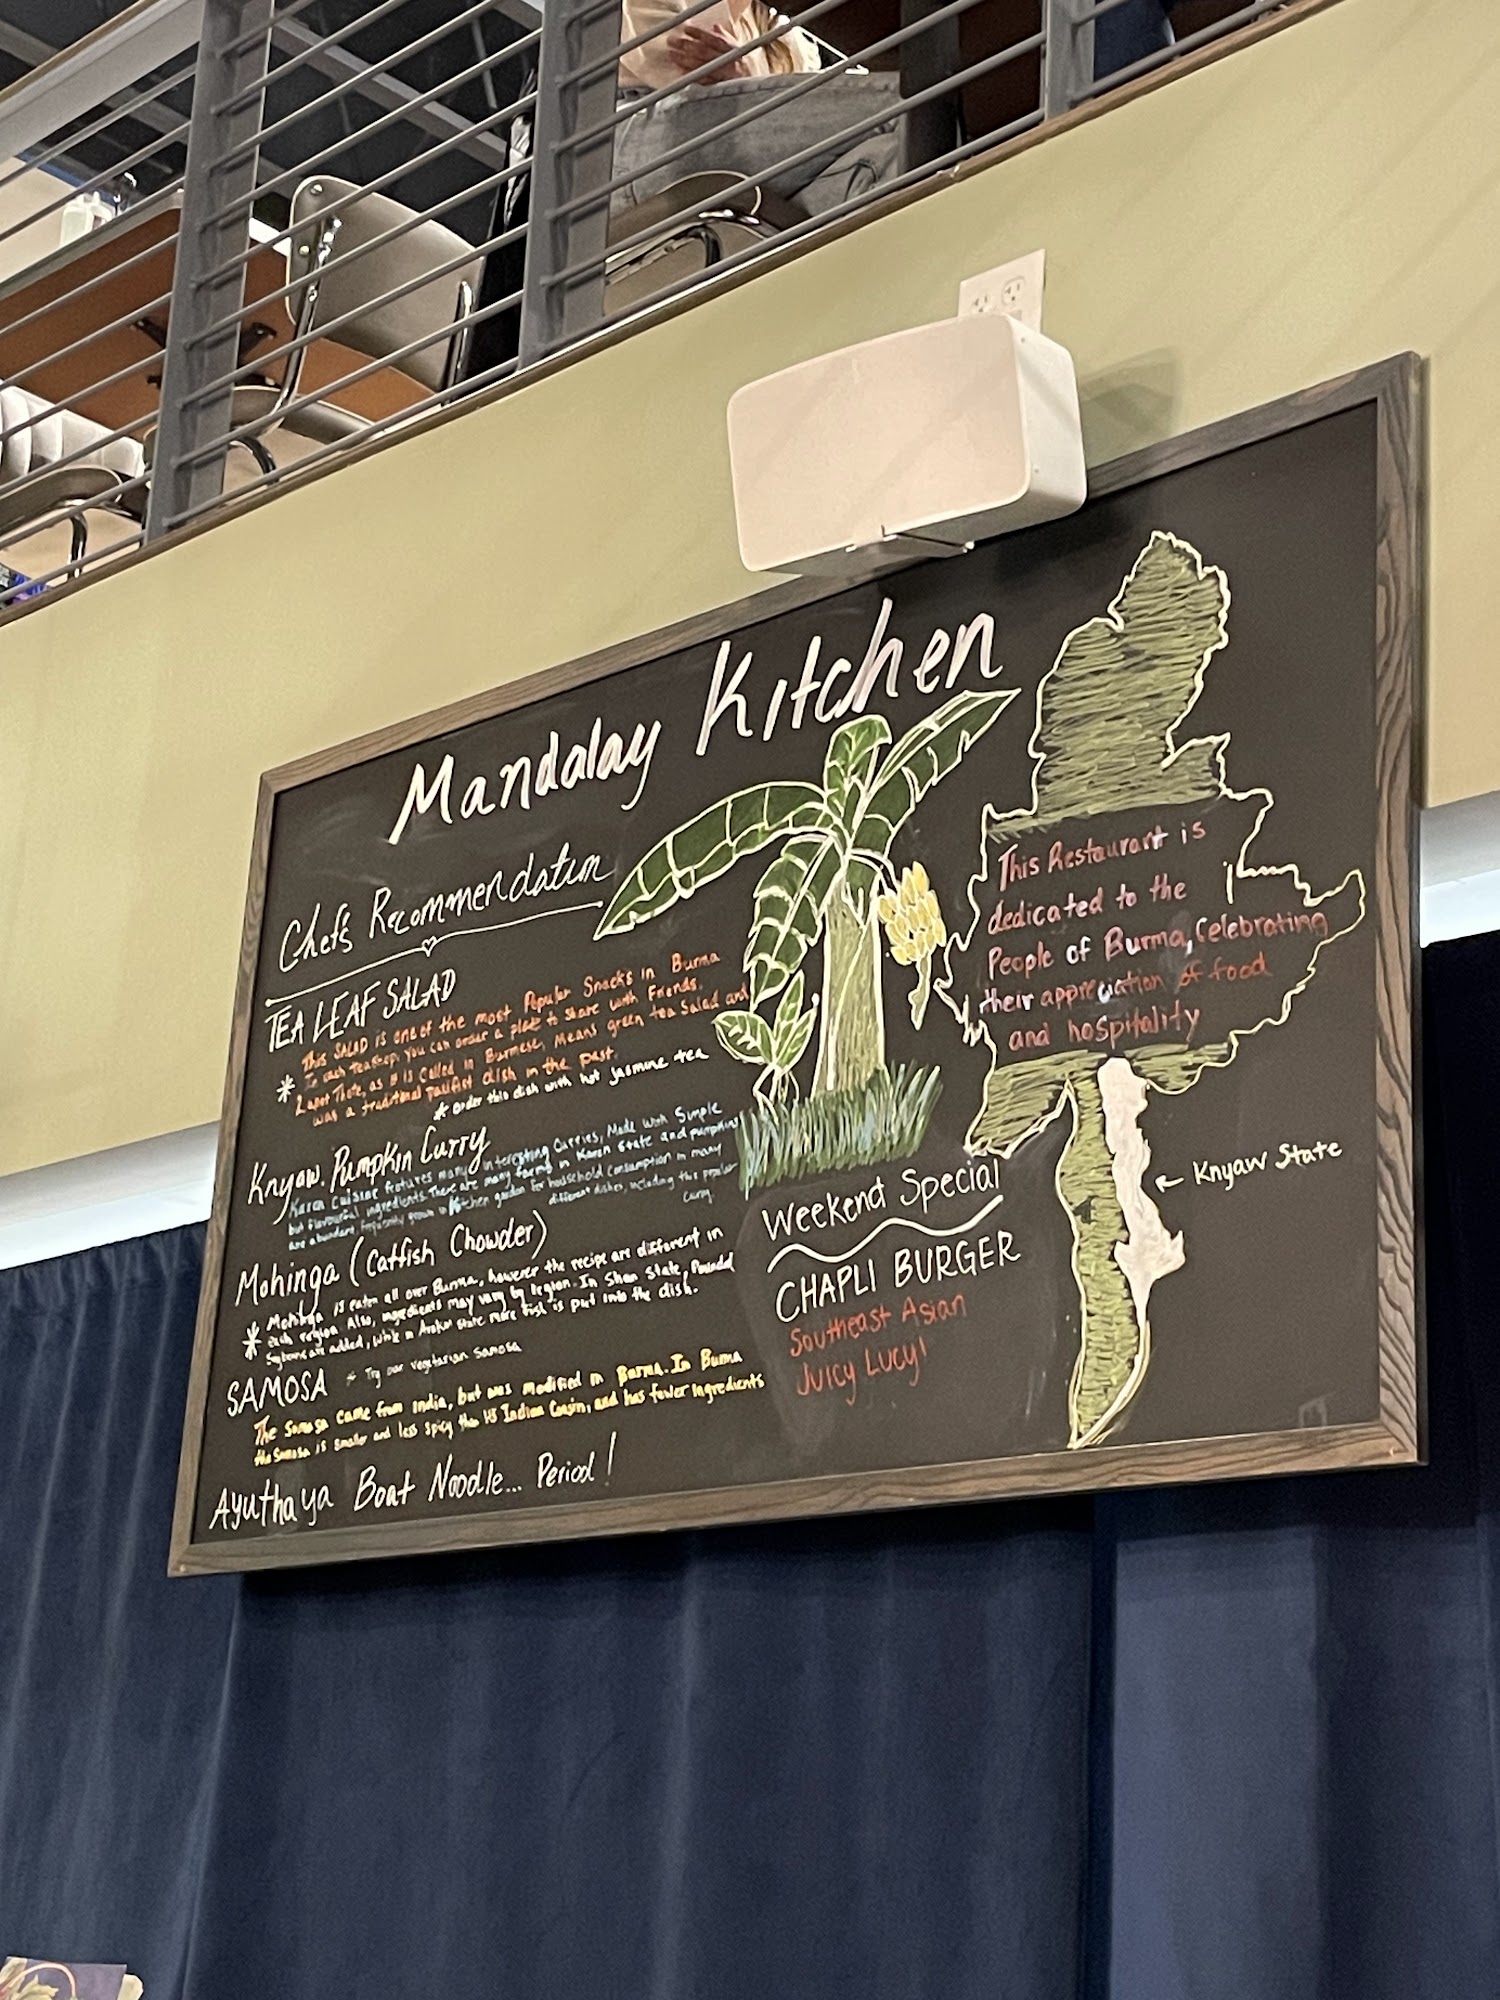 Mandalay Kitchen
Chef's Recommendation
TEA LEAF SALAD
This SALAD is one of the most Popular Snacks in Burma
In each teashop, you can order a plate to share with Friends.
Lapet Thote, as it is called in Burmese, Means green tea Salad and
was a traditional pacifist dish in the past.
* order this dish with hot jasmine tea
Knyaw Pumpkin Curry
Karen Cuisine features many interesting Curries, Made with Simple
but flavourful ingredients. There are many farms in Karen State and pumpkins
are abundant, frequently grown in kitchen garden for household consumption in many
different dishes, including this popular
curry.
Mohinga (Catfish Chowder)
* Mohinga is eaten all over Burma, however the recipe are different in
each region. Also, ingredients may vary by region. In Shan State, Pounded
Soybeans are added, while in Arakan State more fish is put into the dish.
SAMOSA * Try our vegetarian samosa
The Samosa came from india, but was modified in Burma. In Burma
the Samosa is smaller and less spicy than its Indian Cousin, and has fewer ingredients
Ayuthaya Boat Noodle... Period!
This Restaurant is
dedicated to the
People of Burma, Celebrating
their appreciation of food
and hospitality
← Knyaw State
Weekend Special
CHAPLI BURGER
Southeast Asian
Juicy Lucy!